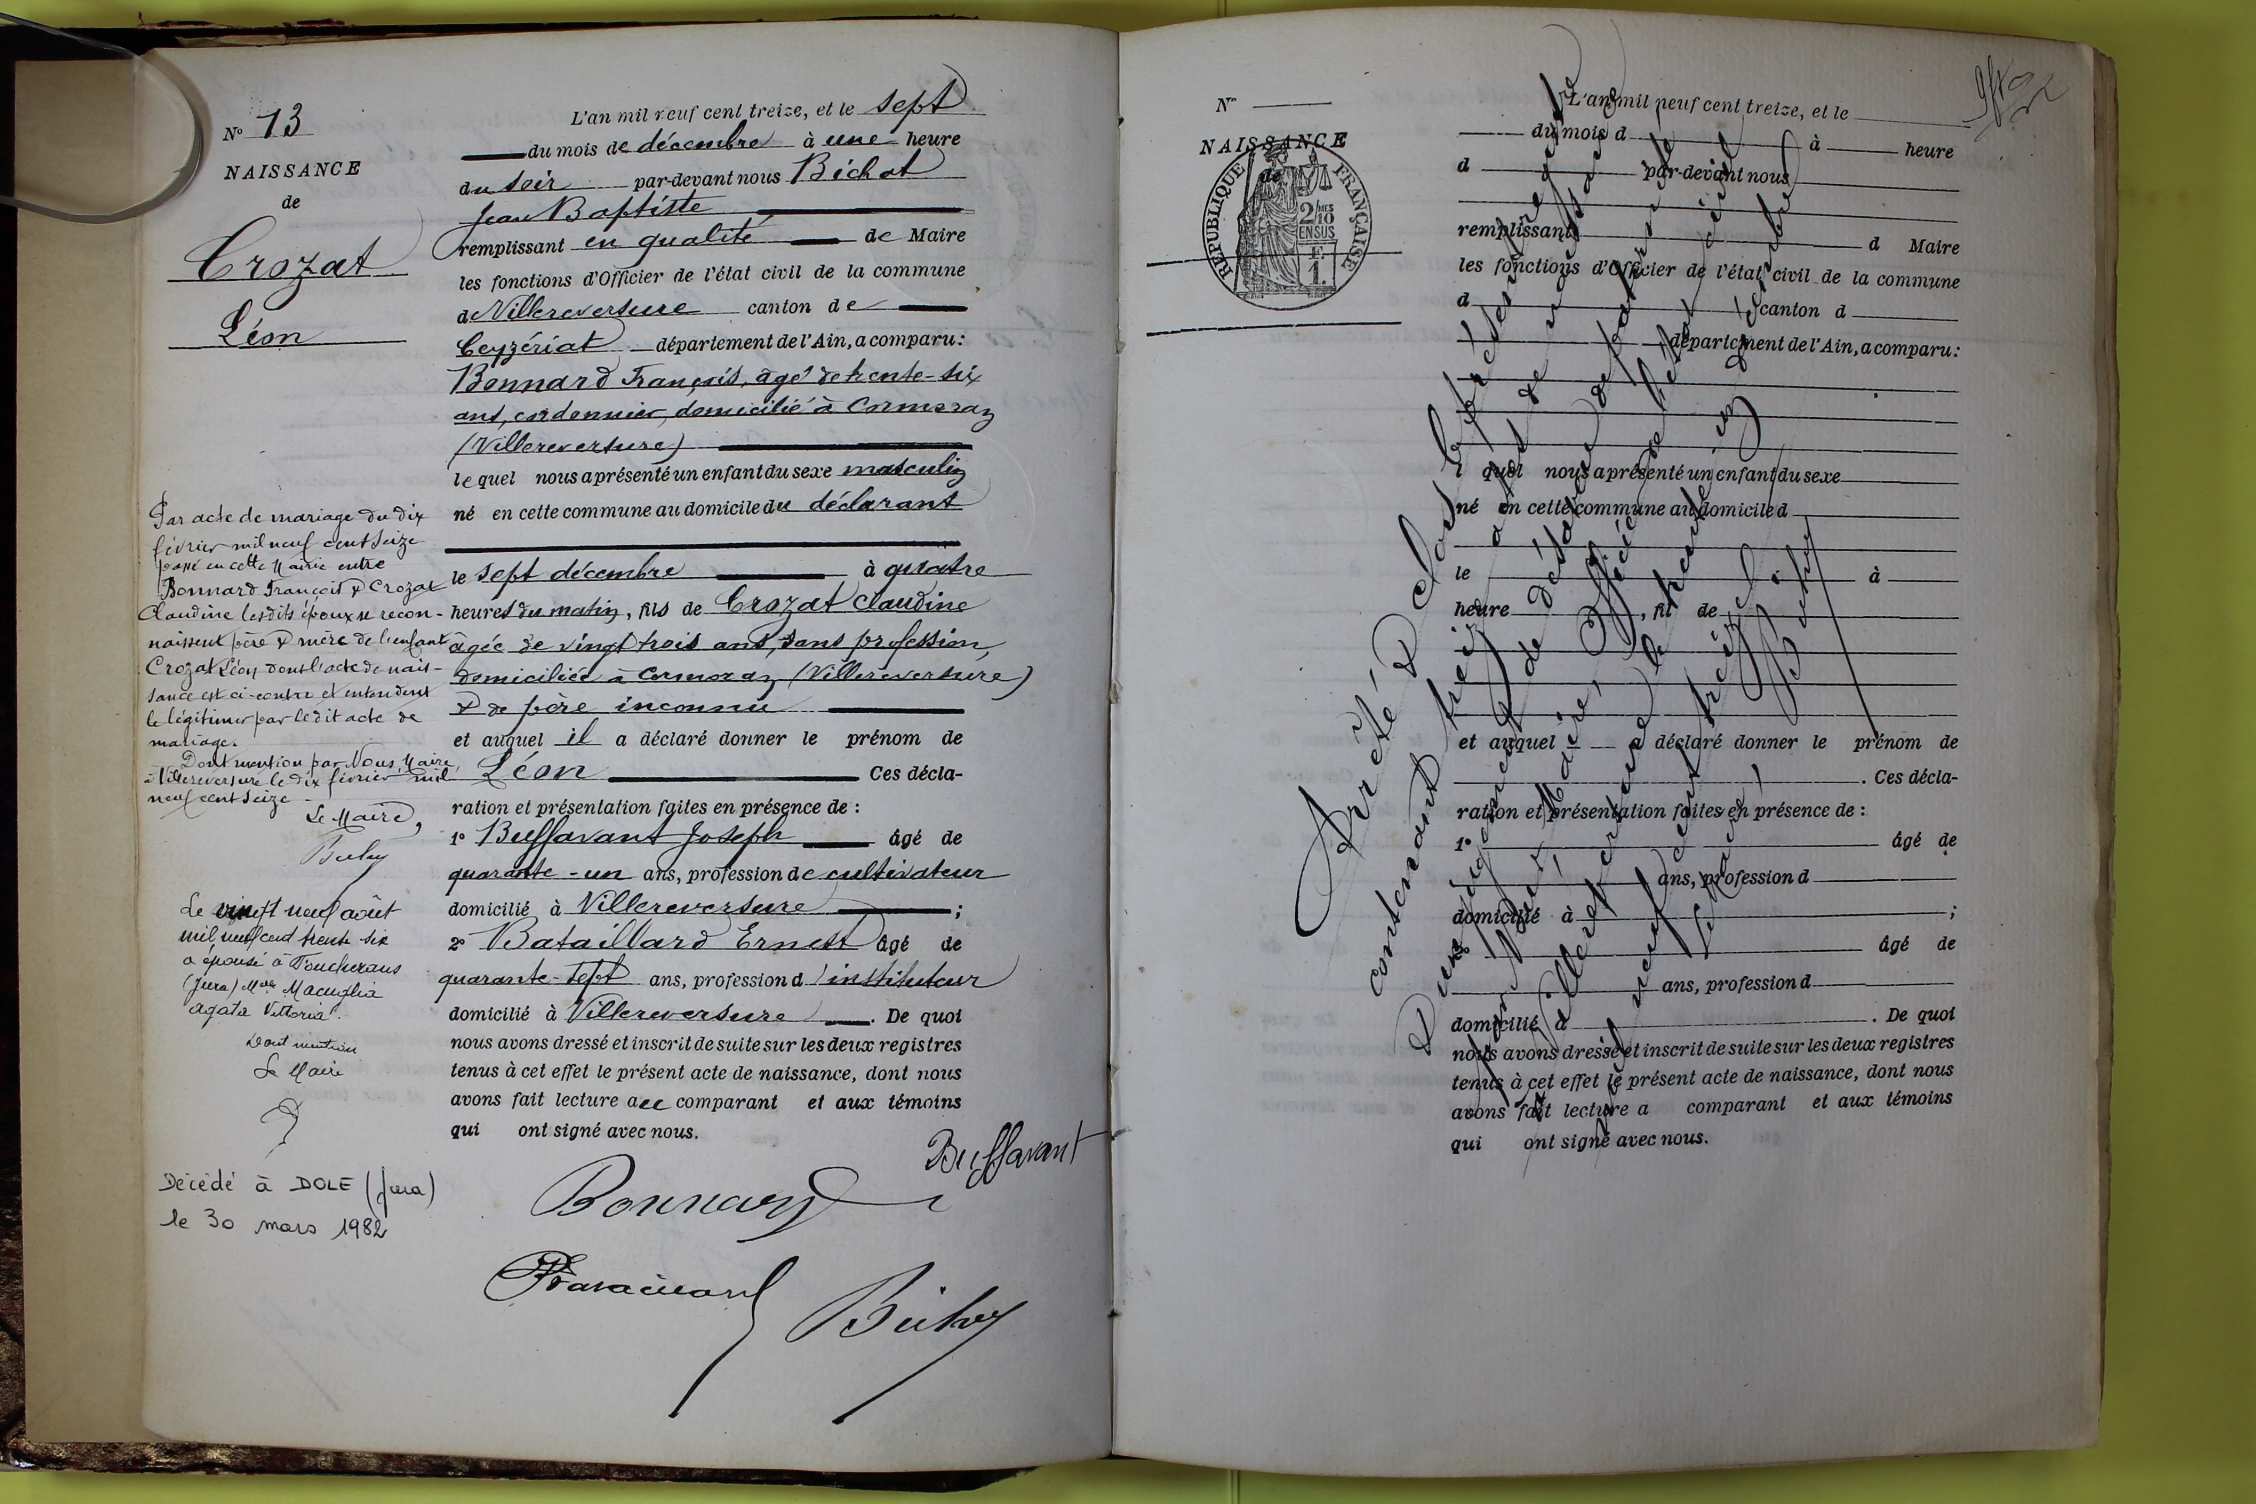 N° 13
NAISSANCE
de
Crozat
Léon
L'an mil neuf cent treize, et le sept
du mois de décembre à une heure
du soir par-devant nous Bichat
Jean Baptiste
remplissant en qualité de Maire
les fonctions d'Officier de l'état civil de la commune
de Villereversure canton de
Ceyzériat département de l'Ain, a comparu:
Bonnard François, âgé de trente-six
ans, cordonnier, domicilié à Cormoraz
(Villereversure)
lequel nous a présenté un enfant du sexe masculin
né en cette commune au domicile du déclarant
le sept décembre à quatre
heures du matin, fils de Crozat Claudine
âgée de vingt trois ans, sans profession,
domiciliée à Cormoraz (Villereversure)
& de père inconnu
et auquel il a déclaré donner le prénom de
Léon Ces décla-
ration et présentation faites en présence de :
1° Buffavant Joseph âgé de
quarante-un ans, profession de cultivateur
domicilié à Villereversure ;
2° Bataillard Ernest âgé de
quarante-sept ans, profession d'instituteur
domicilié à Villereversure . De quoi
nous avons dressé et inscrit de suite sur les deux registres
tenus à cet effet le présent acte de naissance, dont nous
avons fait lecture au comparant et aux témoins
qui ont signé avec nous.
Buffavant
Bonnard
Par acte de mariage du dix
février mil neuf cent seize
passé en cette Mairie entre
Bonnard François & Crozat
Claudine lesdits époux se recon-
naissent père & mère de l'enfant
Crozat Léon dont l'acte de nais-
sance est ci-contre et entendent
le légitimer par ledit acte de
mariage.
Dont mention par Nous, Maire,
à Villereversure le dix février mil
neuf cent seize
Le Maire,
Le vingt neuf août
mil neuf cent trente six
a épousé à Foucherans
(Jura) Melle Macuglia
Agata Vittoria.
Dont mention
Le Maire
Décédé à DOLE (Jura)
le 30 mars 1982
N°
NAISSANCE
de
RÉPUBLIQUE FRANÇAISE
2/10MES
EN SUS
F.
1.
L'an mil neuf cent treize, et le
du mois d à heure
d par-devant nous
remplissant d Maire
les fonctions d'Officier de l'état civil de la commune
d canton d
département de l'Ain, a comparu:
l quel nous a présenté un enfant du sexe
né en cette commune au domicile d
le à
heure , fil de
et auquel a déclaré donner le prénom de
. Ces décla-
ration et présentation faites en présence de :
1° âgé de
ans, profession d
domicilié à ;
2° âgé de
ans, profession d
domicilié à . De quoi
nous avons dressé et inscrit de suite sur les deux registres
tenus à cet effet le présent acte de naissance, dont nous
avons fait lecture a comparant et aux témoins
qui ont signé avec nous.
Arrêté & clos le présent registre
contenant treize actes de naissances
Deux jugements de désaveu de paternité
par nous, Maire, Officier de l'état civil
à Villereversure le trente un décembre
mil neuf cent treize
Le Maire,